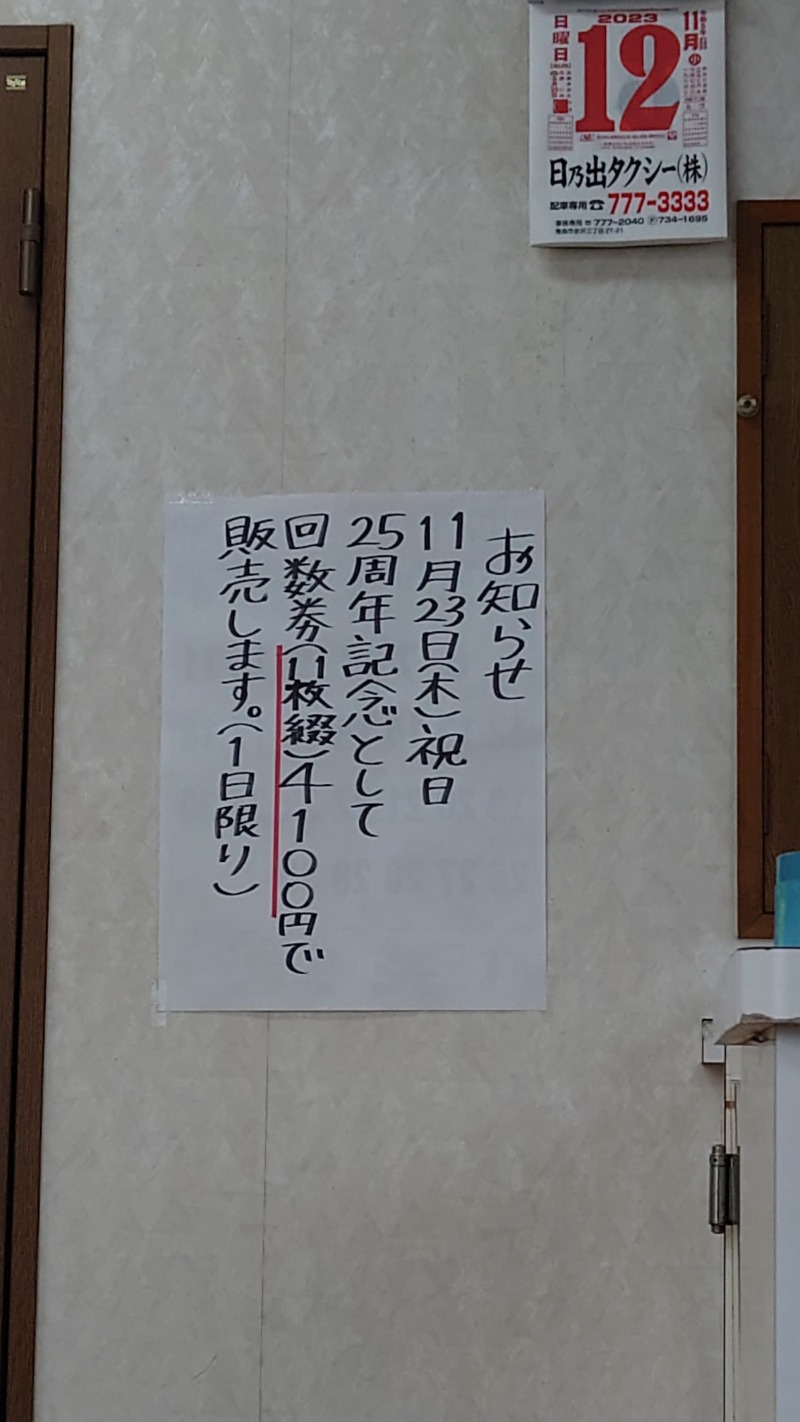 2023
11月
小
日曜日
12
日乃出タクシー(株)
配車専用☎777-3333
777-2040 734-1695
お知らせ
11月23日(木)祝日
25周年記念として
回数券(11枚綴)4100円で
販売します。(1日限り)